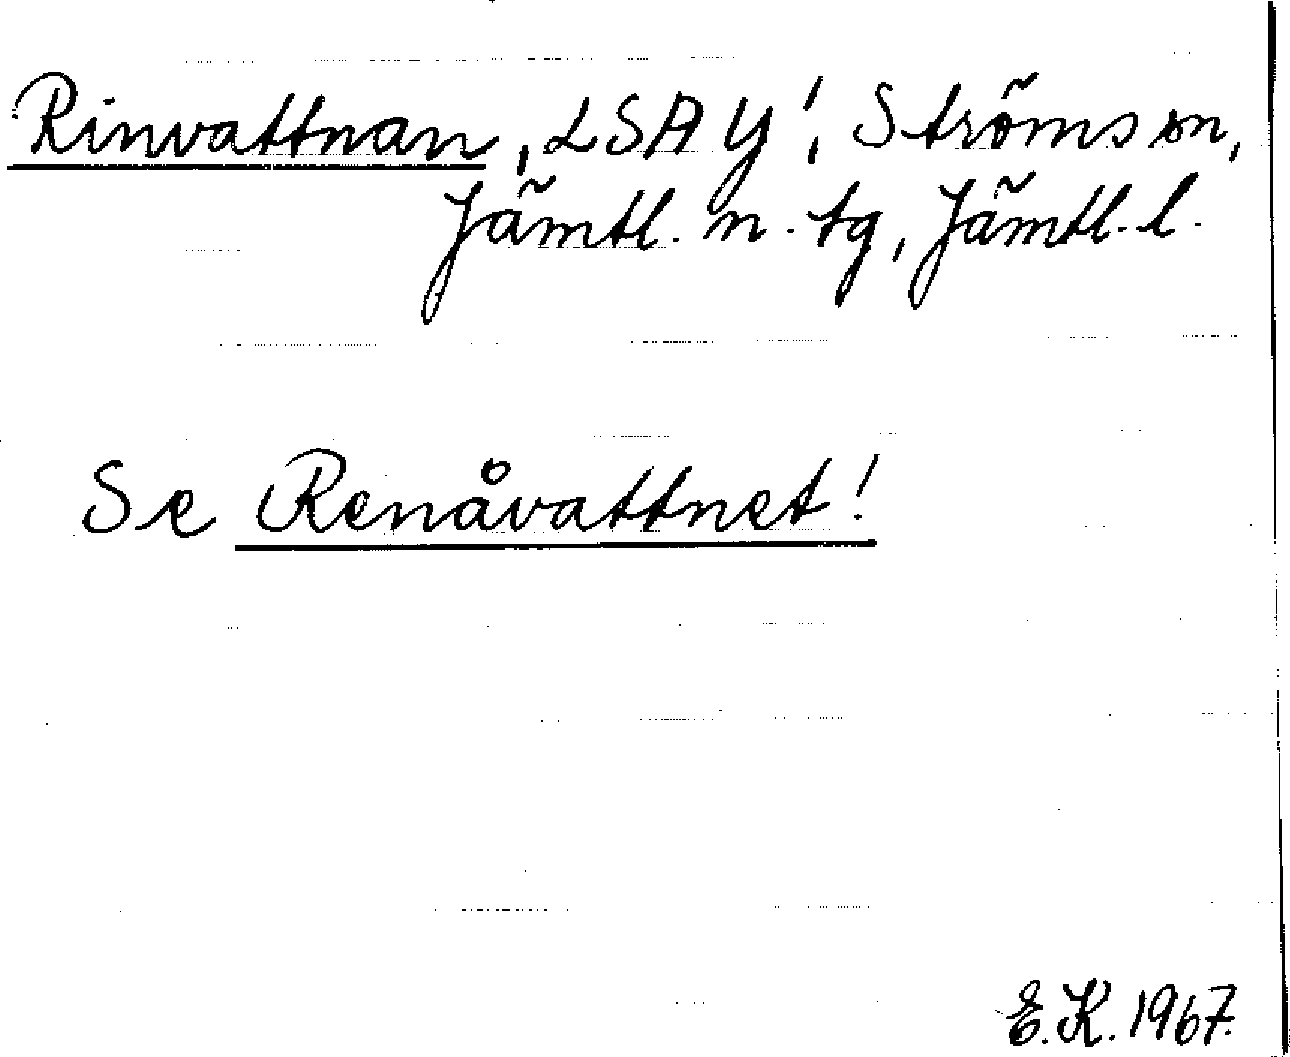 Rinvattnan, LSA Y', Ströms sn,
Jämtl. n. tg, Jämtl. l.
Se Renåvattnet!
E.K. 1967.